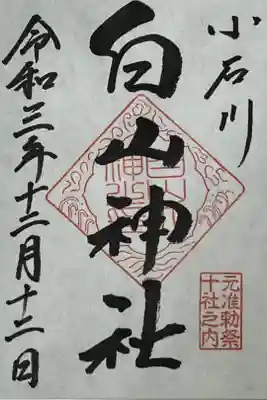 小石川
白山神社
元准勅祭
十社之内
令和三年十二月十二日